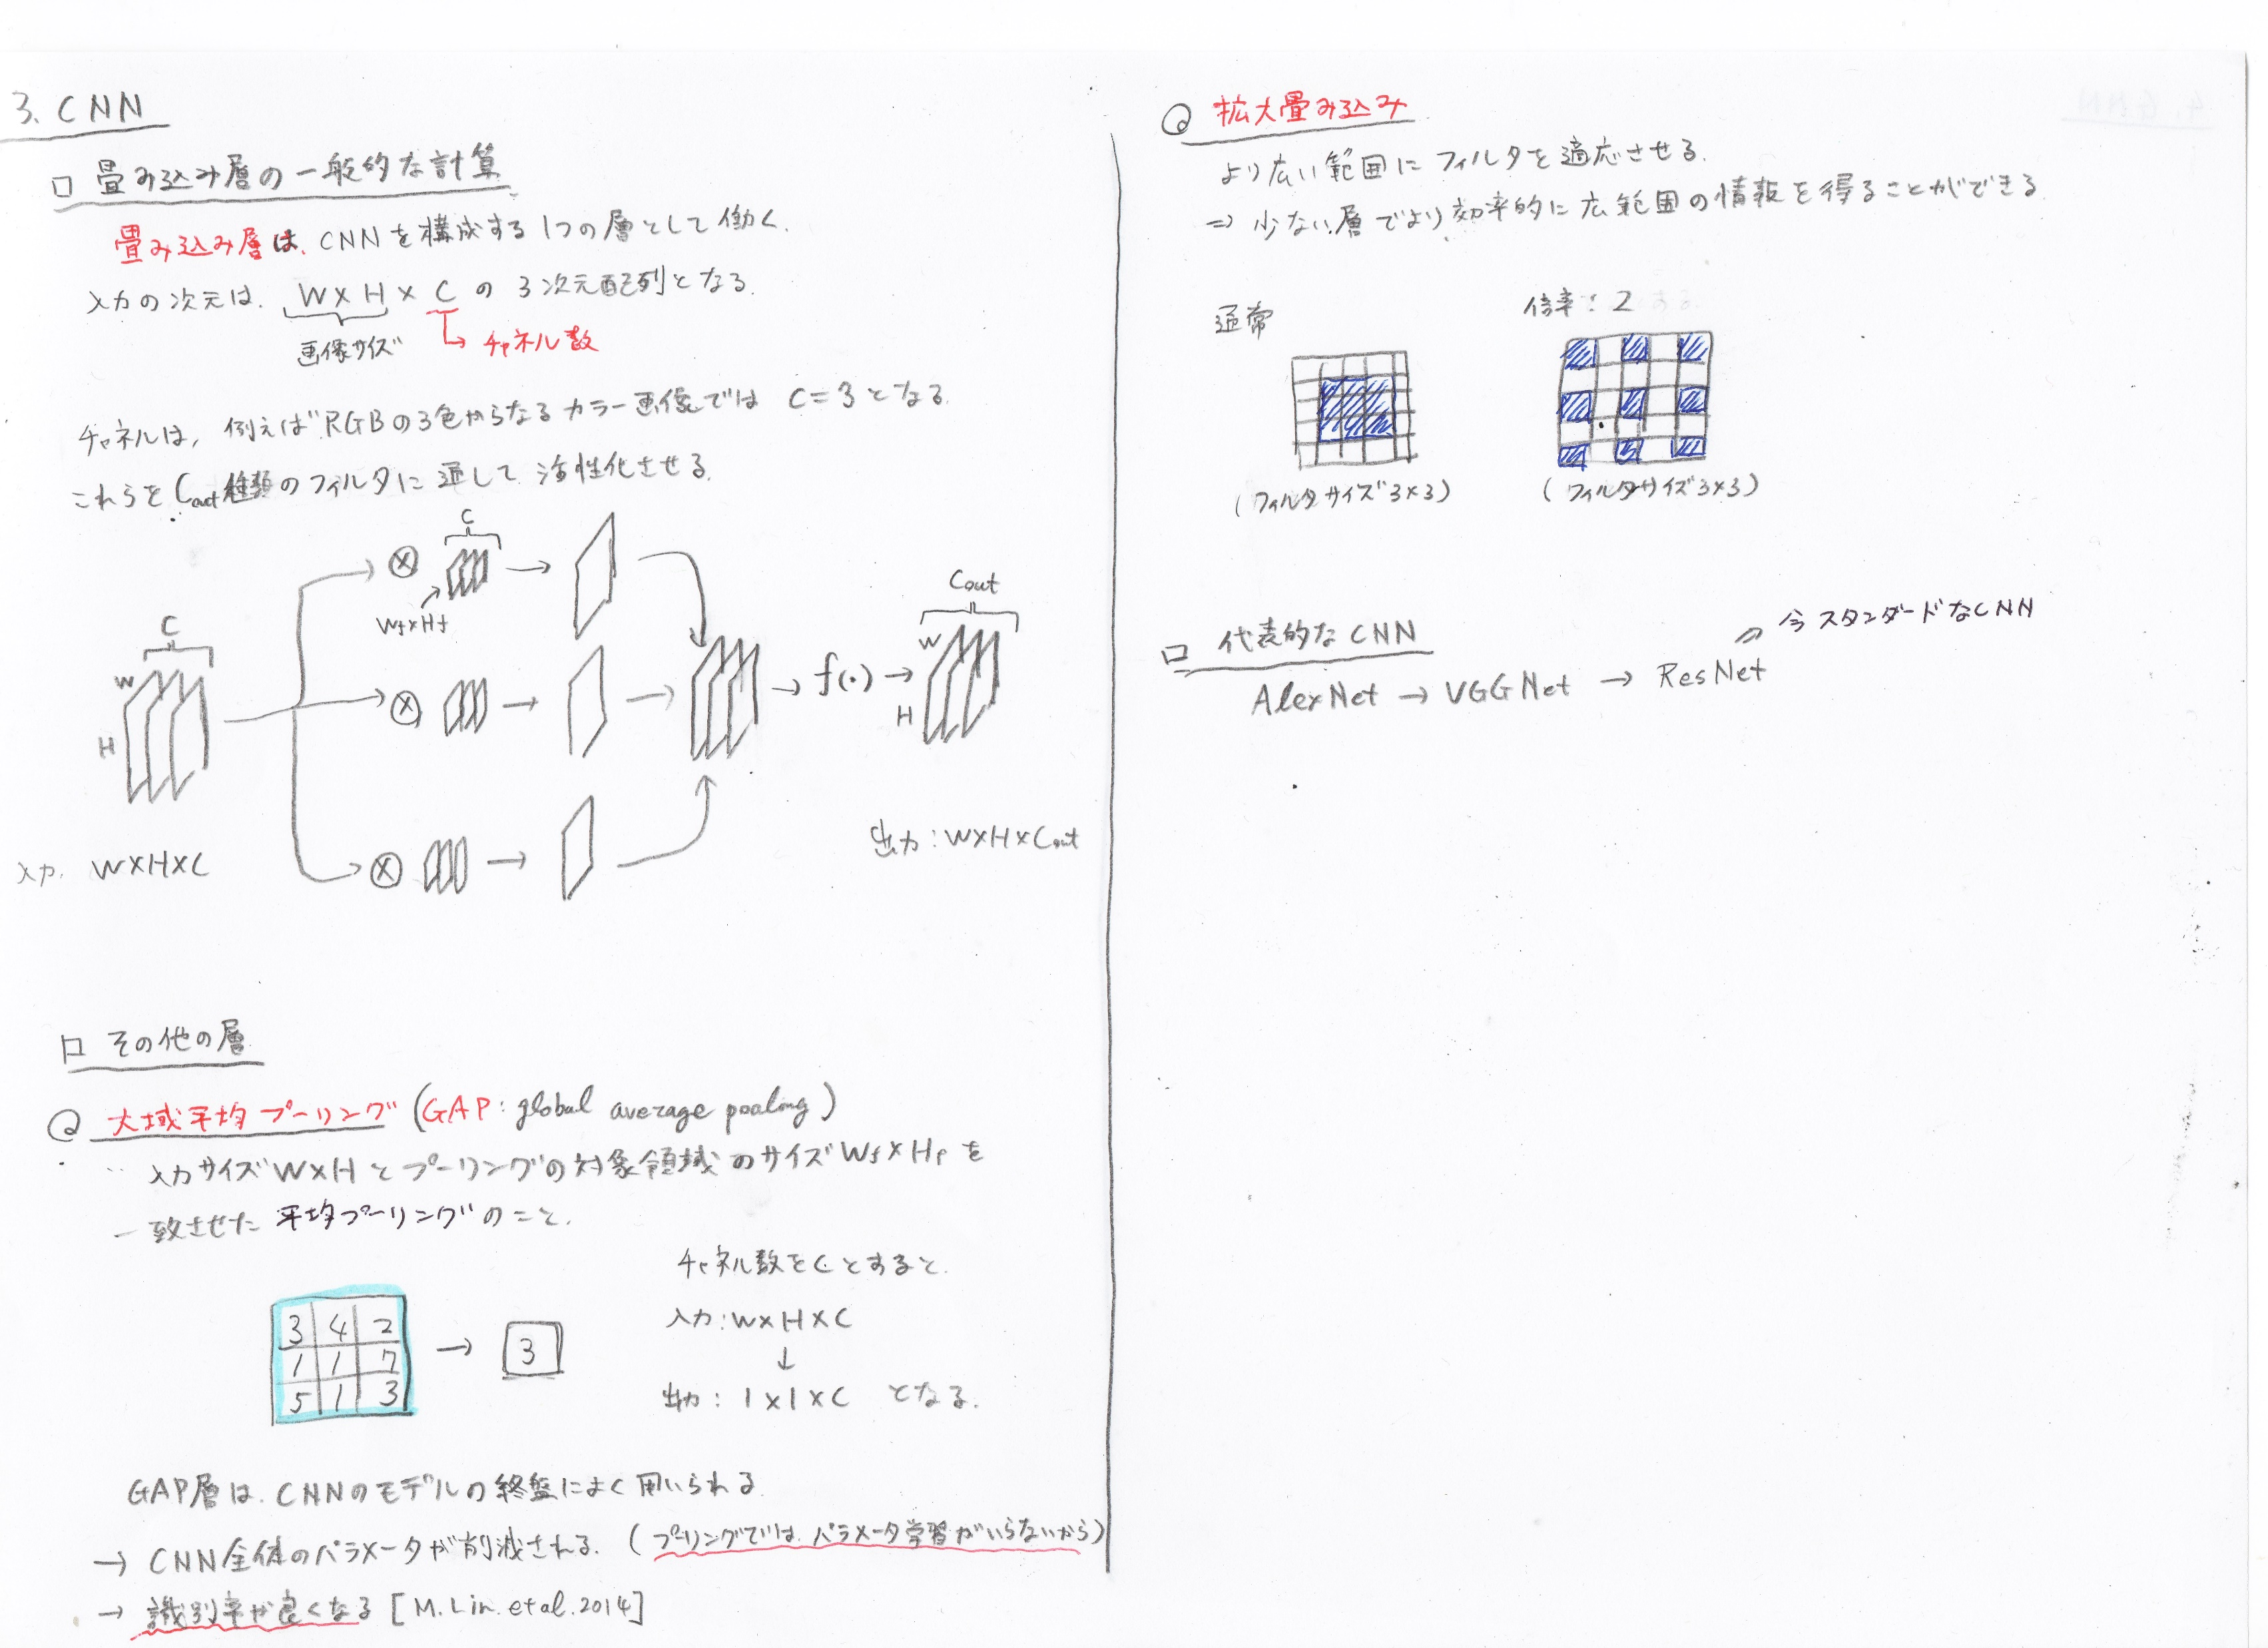 3. CNN
□ 畳み込み層の一般的な計算
畳み込み層は、CNNを構成する1つの層として働く.
入力の次元は. W×H×C の 3次元配列となる.
画像サイズ
チャネル数
チャネルは, 例えばRGBの3色からなるカラー画像では C=3となる.
これらをCout種類のフィルタに通して活性化させる.
C
Wf×Hf
C
W
H
f(・)
Cout
W
H
入力. W×H×C
出力:W×H×Cout
□ その他の層
大域平均プーリング (GAP: global average pooling)
入力サイズW×Hとプーリングの対象領域のサイズWf×Hfを
一致させた 平均プーリングのこと.
3 4 2
1 1 7
5 1 3
→ 3
チャネル数をCとすると.
入力:W×H×C
↓
出力: 1×1×C となる.
GAP層は. CNNのモデルの終盤によく用いられる.
→ CNN全体のパラメータが削減される. (プーリングでは. パラメータ学習がいらないから)
→ 識別率が良くなる [M.Lin. et al. 2014]
拡大畳み込み
より広い範囲にフィルタを適応させる.
⇒ 少ない層でより効率的に広範囲の情報を得ることができる
通常
倍率:2
(フィルタサイズ3×3)
(フィルタサイズ3×3)
□ 代表的なCNN
今スタンダードなCNN
AlexNet → VGGNet → ResNet